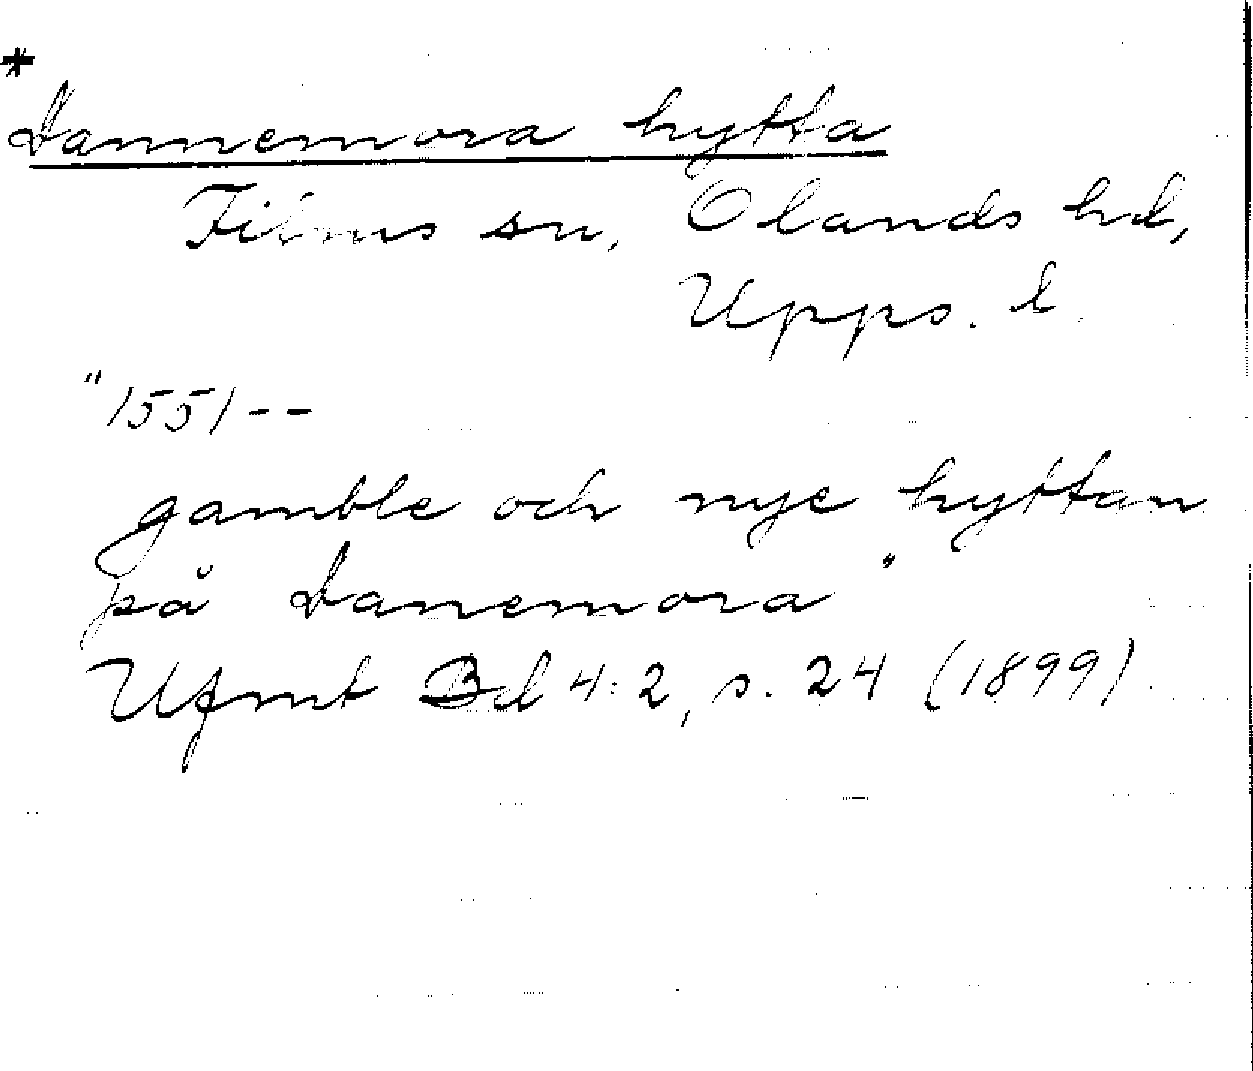 *
Dannemora hytta
Films sn, Olands hd,
Upps. l.
"1551--
gamble och nye hyttan
på Danemora"
Ufmt Bd 4:2, s. 24 (1899).